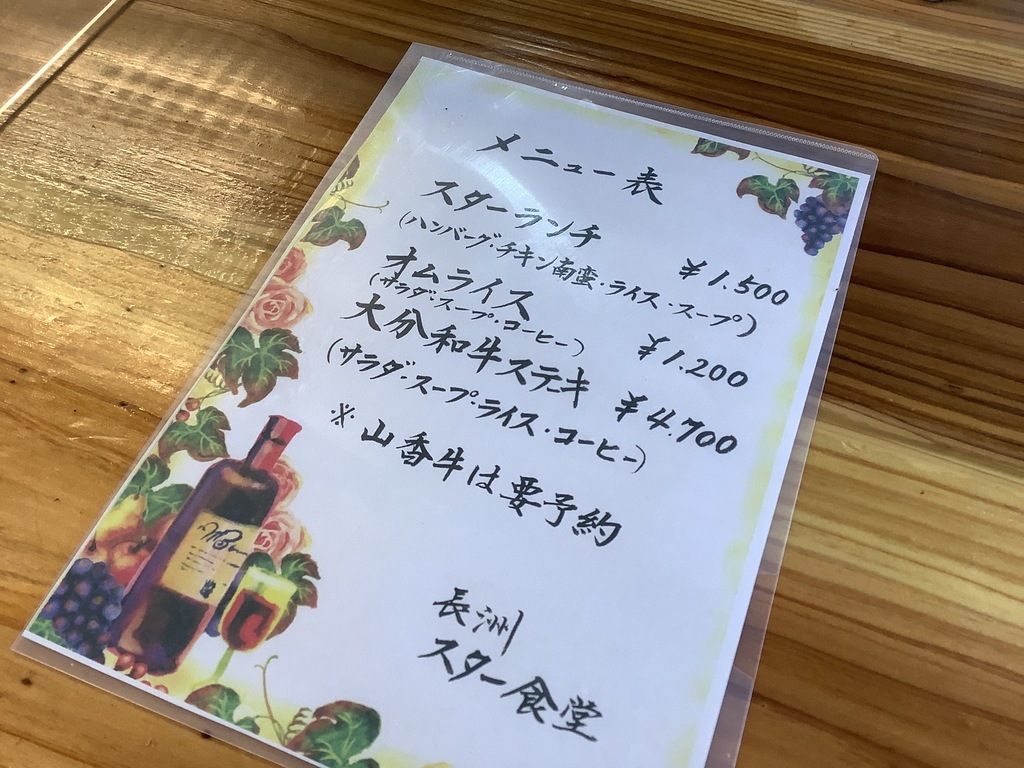 メニュー表
スターランチ ¥1.500
(ハンバーグ・チキン南蛮・ライス・スープ)
オムライス ¥1.200
(サラダ・スープ・コーヒー)
大分和牛ステーキ ¥4.700
(サラダ・スープ・ライス・コーヒー)
※山香牛は要予約
長洲
スター食堂